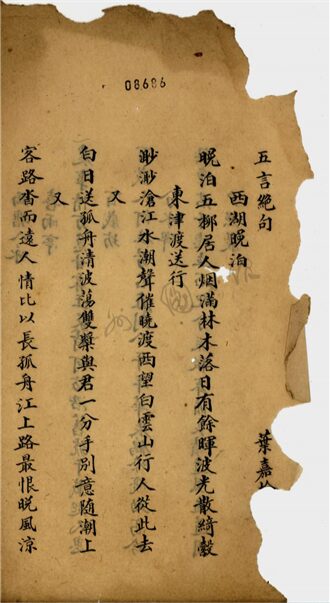 08686
五言絕句 葉嘉
西湖晚泊
晚泊五柳居人烟滿林木落日有餘暉波光散綺縠
東津渡送行
渺渺滄江水潮聲催曉渡西望白雲山行人從此去
又
白日送孤舟清波蕩雙槳與君一分手別意隨潮上
又
客路沓而遠人情比以長孤舟江上路最恨晚風涼